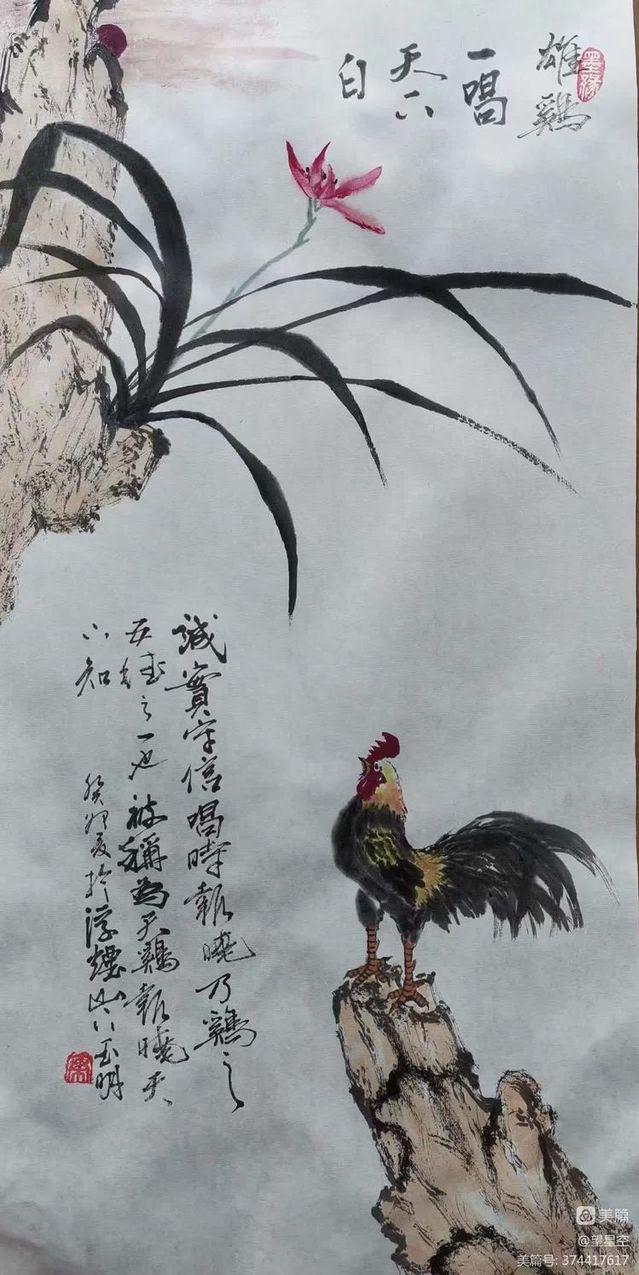 雄鷄
一唱
天下
白
墨緣
誠實守信唱時報曉乃鷄之
五德之一也被稱為天鷄報曉天
下知
癸卯夏於浮煙山下玉明
美篇
@望星空
美篇号: 374417617